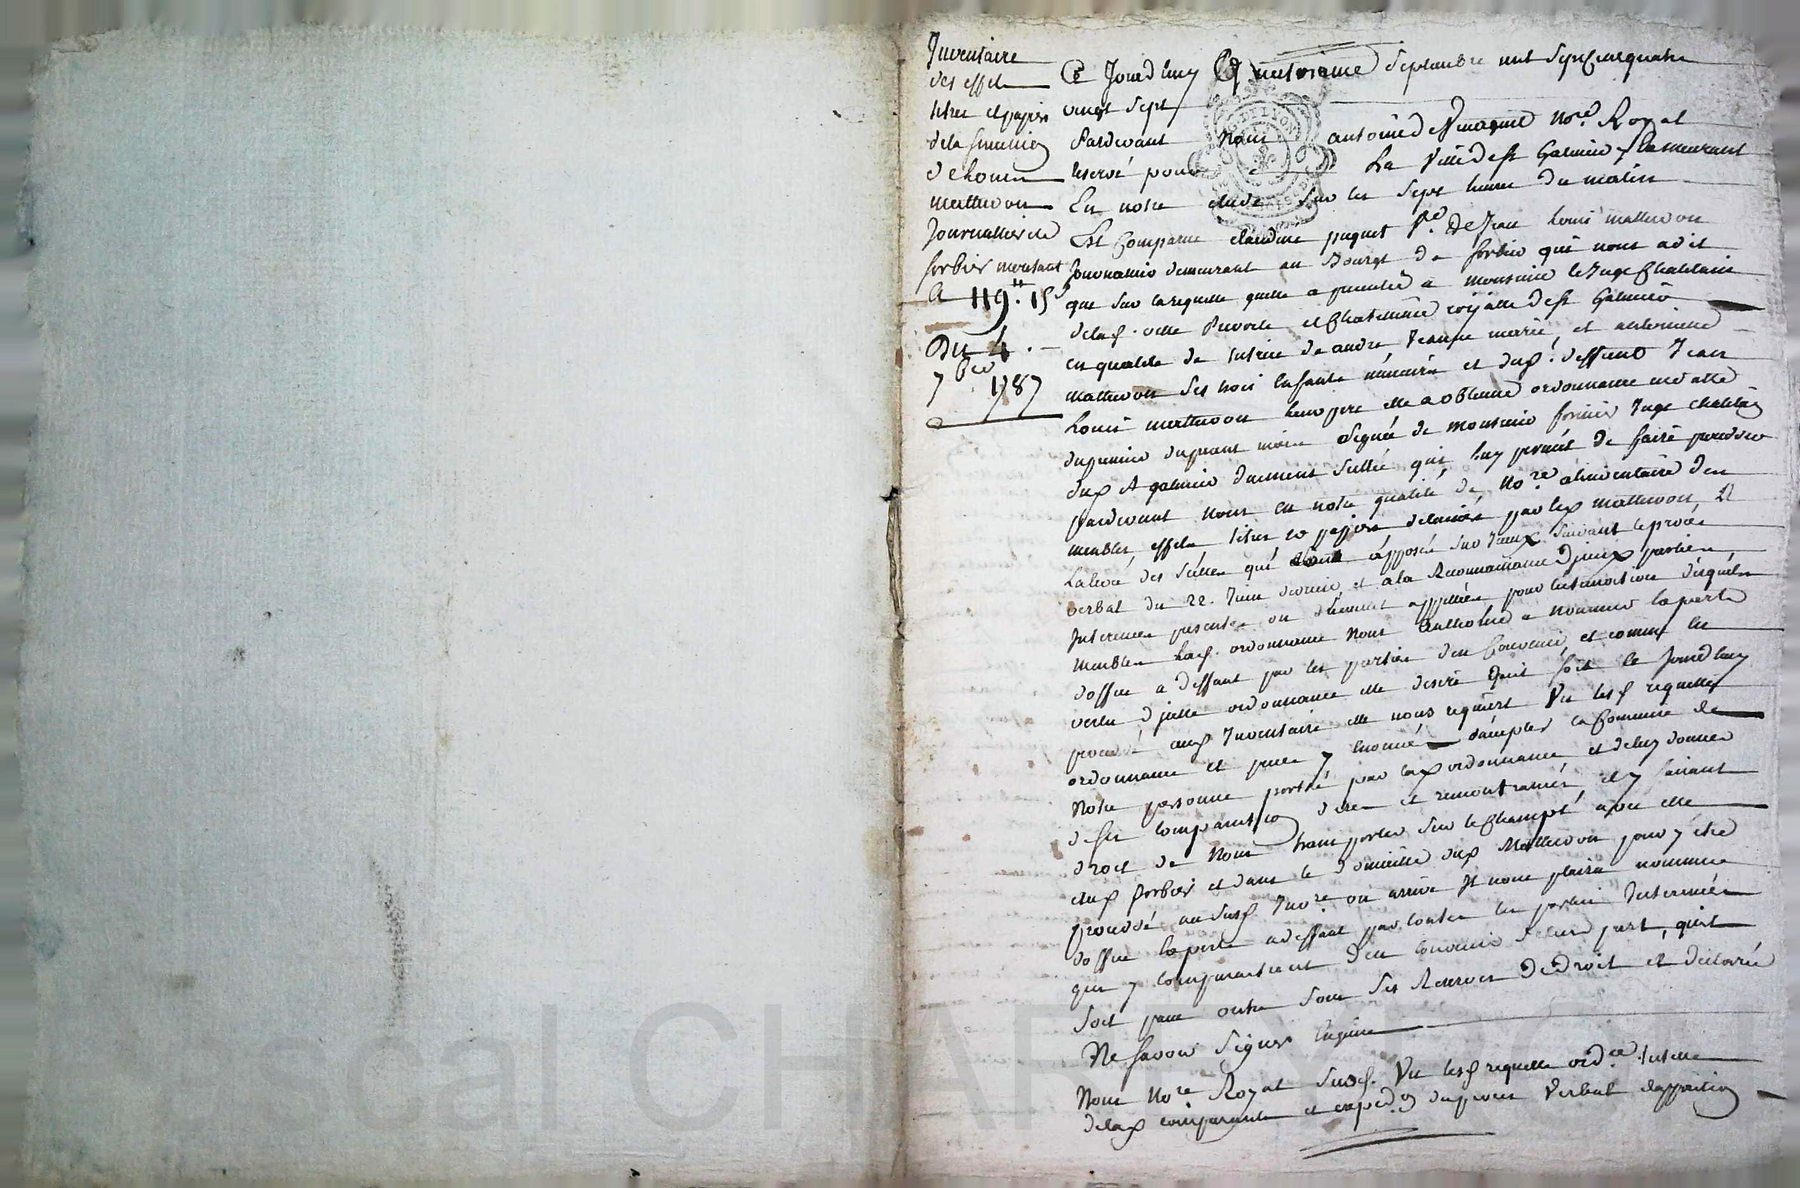 Inventaire
des effets
titres et papiers
de la succession
de Louis
mathevon
Journallier de
sorbier montant
A 119ᵗᵗ. 15ˢ
Du 4.
7bre 1787
Ce Jourd'huy quatrieme septembre mil Sept cent quatre
vingt Sept
Pardevant Nous antoine no.re Royal
reservé pour La Ville de St Galmier y demeurant
En notre étude sur les Sept heures du matin
Est Comparue claudine puquet V.e de Jean Louis mathevon
Journallier demeurant au Bourg de sorbier qui nous a dit
que sur la requette quelle a presenté a monsieur le Juge Chatelain
de la ville Prevoté et Chatellenie royalle de St Galmier
en qualité de tutrice de andré Jeanne marie et antoinette
mathevon ses trois Enfants mineurs et dud. deffunt Jean
Louis mathevon leur pere elle a obtenu ordonnance
du premier du present mois Signée de monsieur Juge chatelain
dud St galmier duement Sellée qui luy permet de faire proceder
pardevant nous en notre qualité de No.re a linventaire des
meubles effets titres et papiers delaissés par led mathevon, a
La levée des Sellés qui apposés sur Iceux suivant le procés
verbal du 22. Juin dernier, et a la Reconnoissance d'iceux parties
Interessées presentes ou duement appellées pour lestimation desquels
meubles lad. ordonnance nous authorise a nommer lexpert
d'office a deffaut par les parties d'en Convenir, et comme en
vertu d'icelle ordonnance elle desire quil soit ce Jourd'huy
procedé aud Inventaire elle nous requiert Vu lesd requette
ordonnance et pieces y enoncées d'accepter la Commission de
Notre personne portée par lad ordonnance, et de luy donner
acte de sa comparution dires et remontrances, et y faisant
droit de Nous transporter sur le Champ avec elle
aud sorbier et dans le domicille dud Mathevon pour y etre
procedé au susd Inv.re ou arrivé Il nous plaira nommer
d'office lexpert a deffaut par toutes les parties Interessées
qui y comparoitront d'en Convenir de leur part, quil
soit passé outre sous ses Reserves de droit et a declaré
Ne savoir Signer Enquise
Nous No.re Royal susd. Vu lesd requette ord.ce
de la d comparante et exped.on du procés Verbal dapposition